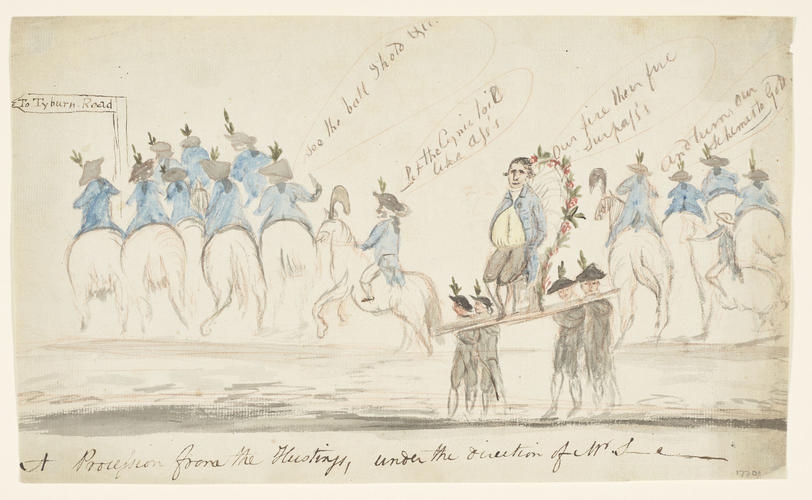 To Tyburn Road
see the ball I hold
Let the Cynic toil
like ass's
Our fire their fire
Surpass's
And turns our
to Gold
A Procession from the Hustings, under the direction of Mr. S—e—